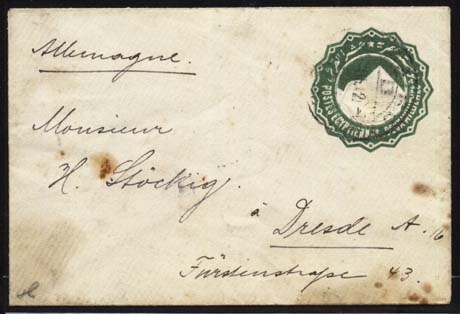 Allemagne.
POSTES EGYPTIENNES
Monsieur
H. Stöckig.
à Dresde A. 16
Fürstenstraße 43.